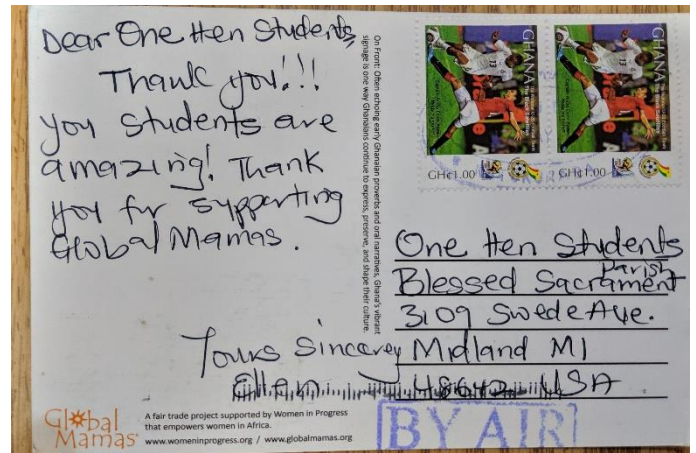 Dear One Hen Students,
Thank you!!!
you students are
amazing! Thank
you for supporting
Global Mamas.
Yours Sincerely
Ellen
On Front: Often echoing early Ghanaian proverbs and oral narratives, Ghana's vibrant
signage is one way Ghanaians continue to express, preserve, and shape their culture.
GHANA
GH¢1.00
GHANA
GH¢1.00
One Hen Students
Blessed Sacrament
Parish
3109 Swede Ave.
Midland MI
48642 USA
BY AIR
Global
Mamas
A fair trade project supported by Women in Progress
that empowers women in Africa.
www.womeninprogress.org / www.globalmamas.org